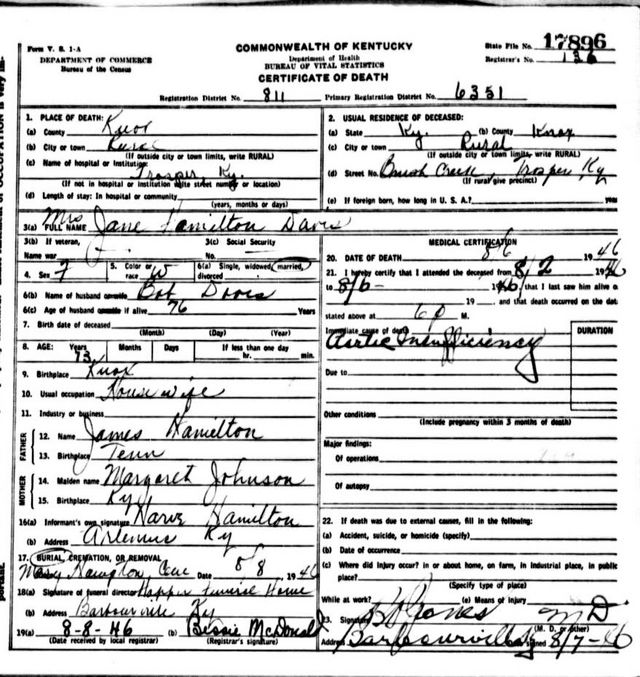 Form V. S. 1-A
DEPARTMENT OF COMMERCE
Bureau of the Census
COMMONWEALTH OF KENTUCKY
Department of Health
BUREAU OF VITAL STATISTICS
CERTIFICATE OF DEATH
State File No. 17896
Registrar's No. 136
Registration District No. 811 Primary Registration District No. 6351
1. PLACE OF DEATH:
(a) County Knox
(b) City or town Rural
(If outside city or town limits, write RURAL)
(c) Name of hospital or institution:
Trosper, Ky.
(If not in hospital or institution write street number or location)
(d) Length of stay: In hospital or community
(years, months or days)
2. USUAL RESIDENCE OF DECEASED:
(a) State Ky. (b) County Knox
(c) City or town Rural
(If outside city or town limits, write RURAL)
(d) Street No. Brush Creek, Trosper, Ky
(If rural give precinct)
(e) If foreign born, how long in U. S. A.? years
3(a) FULL NAME Mrs Jane Hamilton Davis
3(b) If veteran,
Name war
3(c) Social Security
No.
4. Sex F 5. Color or race W 6(a) Single, widowed, married, divorced
6(b) Name of husband or wife Bob Davis
6(c) Age of husband or wife if alive 76
7. Birth date of deceased
(Month) (Day) (Year)
8. AGE: Years Months Days If less than one day
73 hr. min.
9. Birthplace Knox
10. Usual occupation Housewife
11. Industry or business
FATHER
12. Name James Hamilton
13. Birthplace Tenn
MOTHER
14. Maiden name Margaret Johnson
15. Birthplace Ky
16(a) Informant's own signature Harve Hamilton
(b) Address Artemus Ky
17. BURIAL, CREMATION, OR REMOVAL
Cem Date 8/8, 1946
18(a) Signature of funeral director Hopper Funeral Home
(b) Address Barbourville Ky
19(a) 8-8-46 (b) Bessie McDonald
(Date received by local registrar) (Registrar's signature)
MEDICAL CERTIFICATION
20. DATE OF DEATH 8/6 1946
21. I hereby certify that I attended the deceased from 8/2 1946
to 8/6- 1946, that I last saw him alive on
19, and that death occurred on the date
stated above at 6 P M.
Immediate cause of death
DURATION
Aortic Insufficiency
Due to
Other conditions
(Include pregnancy within 3 months of death)
Major findings:
Of operations
Of autopsy
22. If death was due to external causes, fill in the following:
(a) Accident, suicide, or homicide (specify)
(b) Date of occurrence
(c) Where did injury occur? in or about home, on farm, in industrial place, in public
place?
(Specify type of place)
While at work? (e) Means of injury
23. Signature Jones M D.
(M. D. or other)
Address Barbourville Ky Date signed 8/7-46